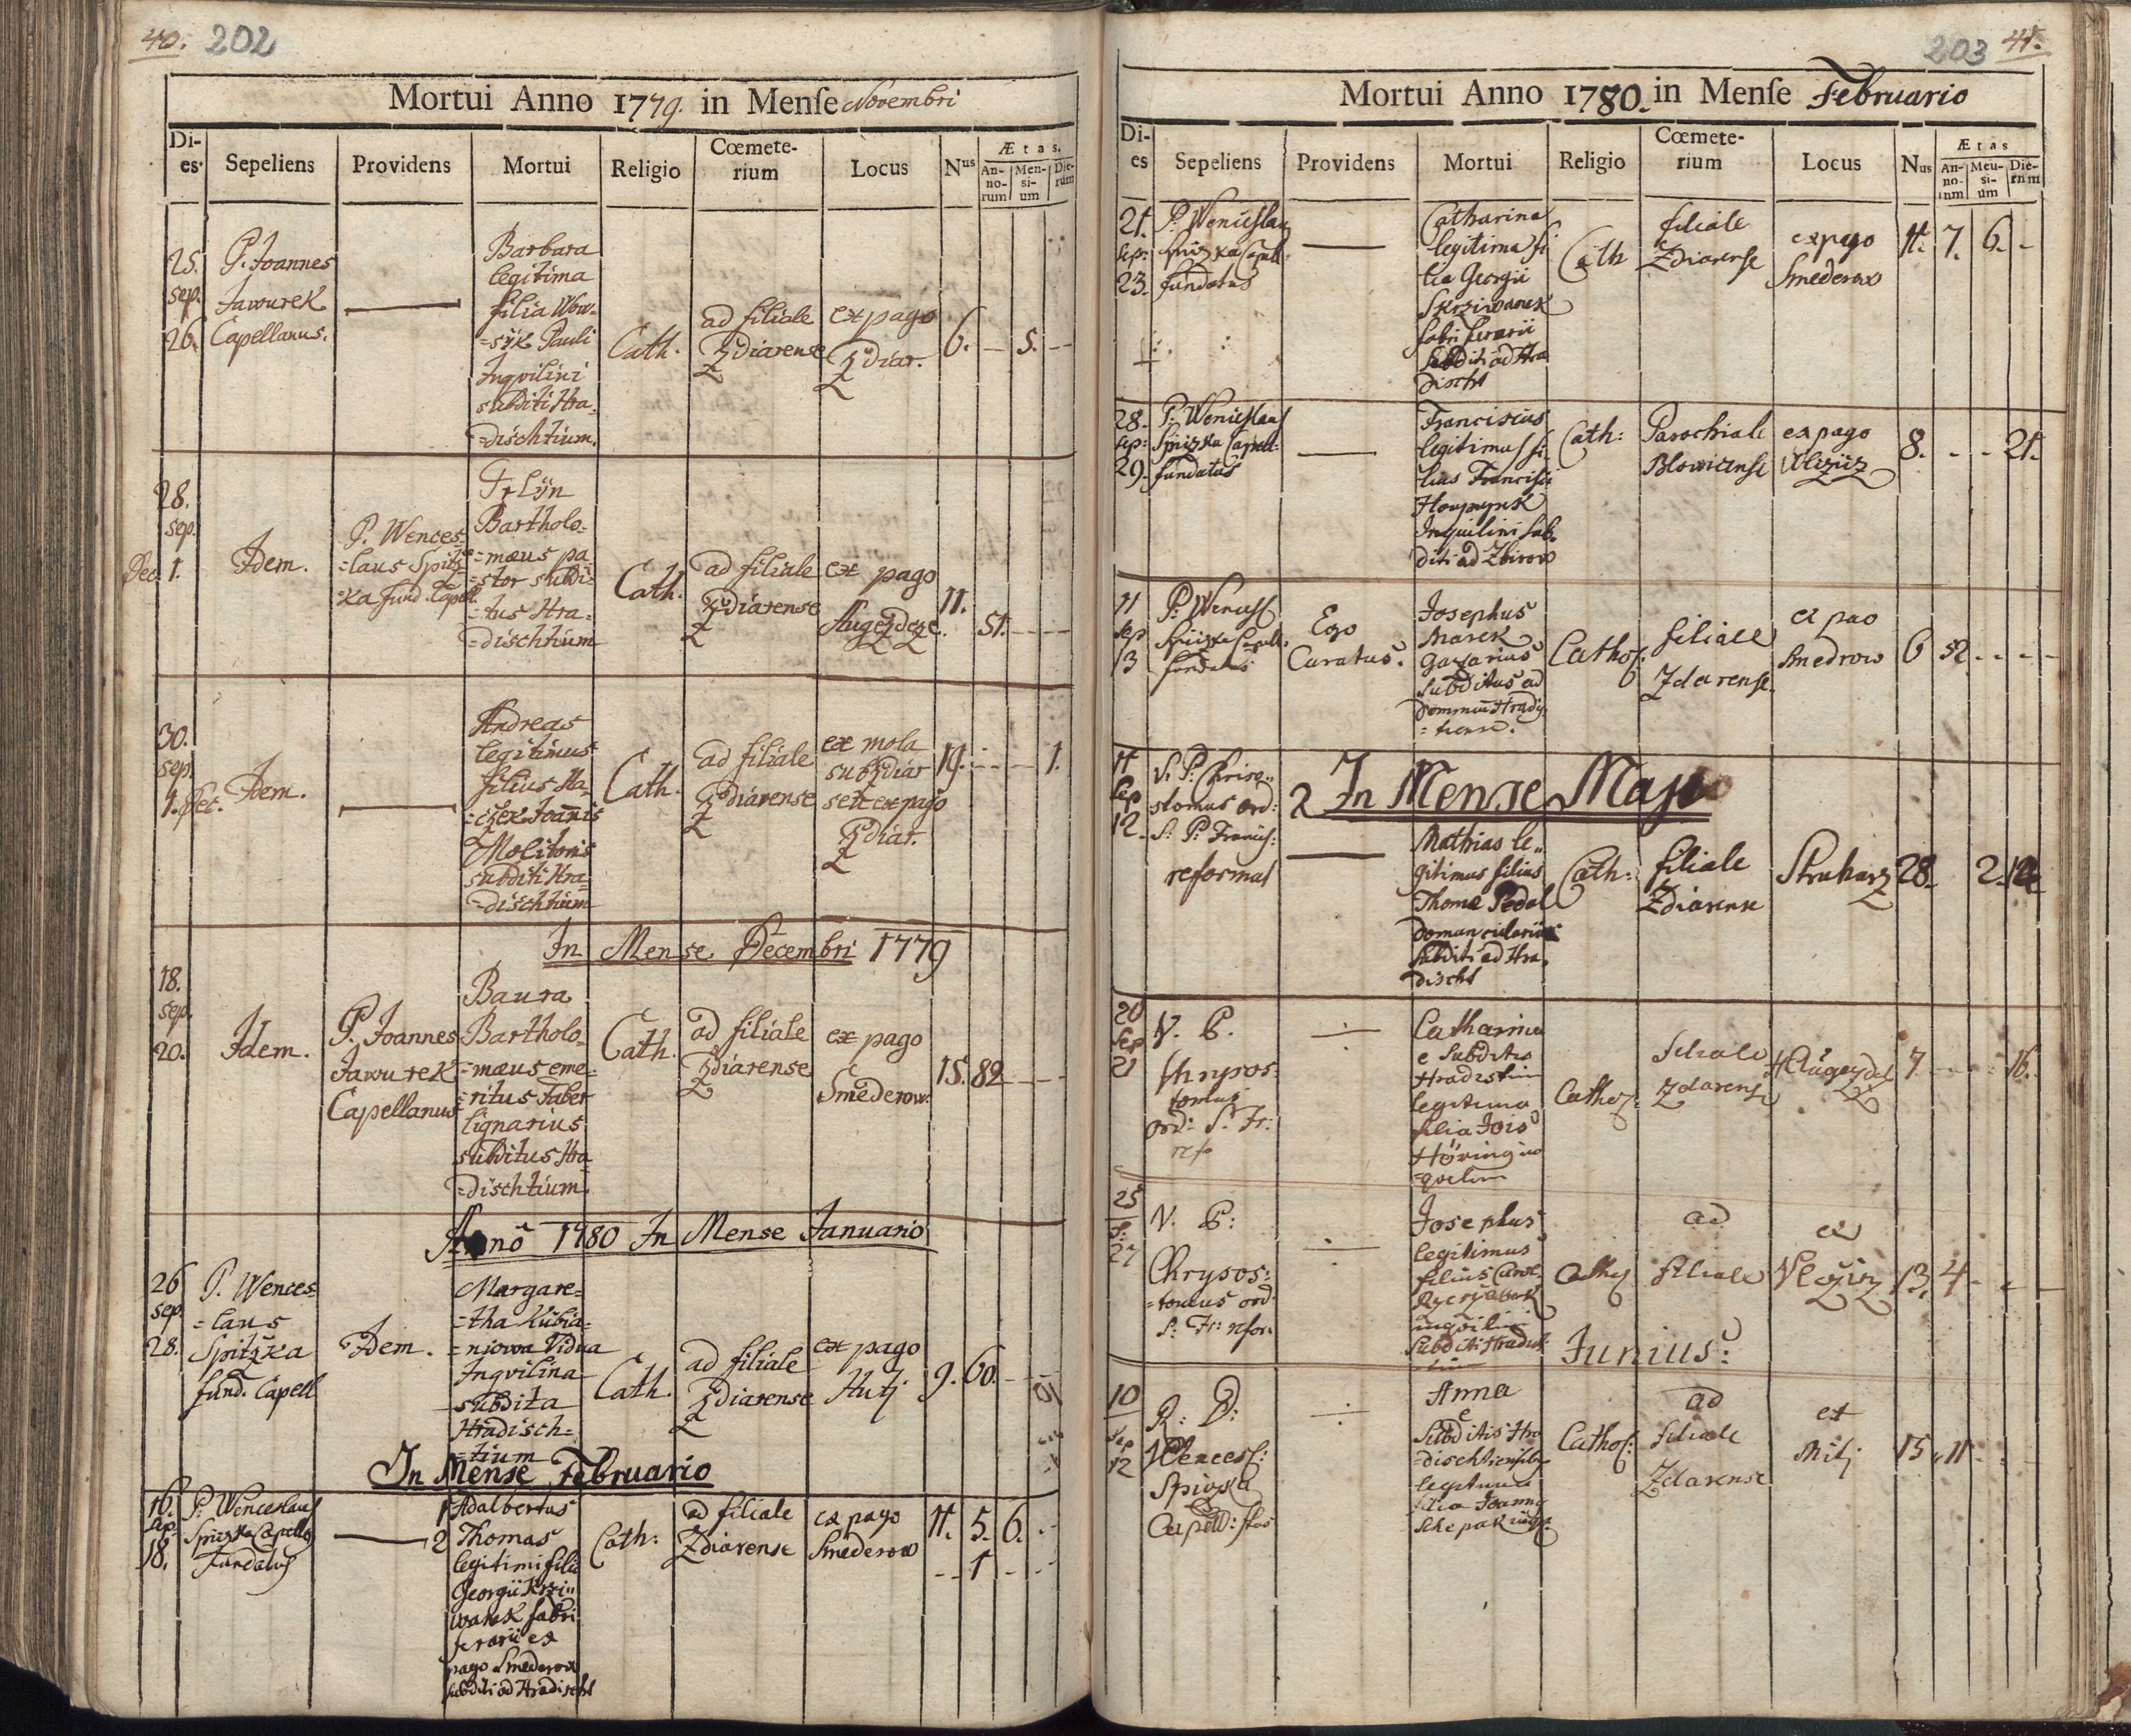 40. 202
Mortui Anno 1779. in Menſe Novembri
Di-
es.
Sepeliens
Providens
Mortui
Religio
Cœmete-
rium
Locus
Nus
Ætas.
An-
no-
rum
Men-
si-
um
Die-
rum
25.
sep.
26.
P. Joannes
Jawurek
Capellanus.
Barbara
legitima
filia Wow-
=sÿk Pauli
Inqvilini
subditi Hra=
=dischtium.
Cath.
ad filiale
Zdiarense
ex pago
Zdiar.
6. — 5. —
28.
sep.
Dec. 1.
Idem.
P. Wences=
=laus Spitz
=ka fund. Capell.
Bartholo=
=mæus pa
=stor subdi=
=tus Hra=
=dischtium
Cath.
ad filiale
Zdiarense
ex pago
Augezdecz.
11. 51. — —
30.
sep.
1. Dec.
Idem.
Andreas
legitimus
filius Ma=
=czek Joanis
Molitoris
subditi Hra=
=dischtium
Cath.
ad filiale
Zdiarense
ex mola
sub Zdiar
seu ex pago
Zdiar.
19. — — 1.
In Mense Decembri 1779
18.
sep.
20.
Idem.
P. Joannes
Jawurek
Capellanus
Baura
Bartholo=
=mæus eme=
=ritus Faber
lignarius
subditus Hra
=dischtium.
Cath.
ad filiale
Zdiarense
ex pago
Smederow.
15. 82 — —
Anno 1780 In Mense Januario
26
sep.
28.
P. Wences=
=laus
Spitzka
fund. Capell
Idem.
Margare=
=tha Kubia=
=niowa Vidua
Inqvilina
subdita
Hradisch=
=tium
Cath.
ad filiale
Zdiarense
ex pago
Hutj.
9. 60. —
In Mense Februario
16.
sep.
18.
P. Wenceslaus
Spiczka Capells
Fundatus
1 Adalbertus
2 Thomas
legitimi filii
Georgii Krzi=
wanek fabri
ferarii ex
pago Smederow
subditi ad Hradischt
Cath:
ad filiale
Zdiarense
ex pago
Smederow
11. 5. 6. -
- - 1 - -
203 41.
Mortui Anno 1780. in Menſe Februario
Di-
es
Sepeliens
Providens
Mortui
Religio
Cœmete-
rium
Locus
Nus
Ætas
An-
no-
inm
Meu-
si-
um
Die-
rnm
21.
sep:
23.
P: Wenceslaus
Spiczka Capell:
fundatus
Catharina
legitima fi
lia Georgii
Skrziwanek
fabri ferarii
subditi ad Hra
discht
Cath
filiale
Zdiarense
ex pago
Smederow
11. 7. 6. -
28.
sep:
29.
P: Wenceslaus
Spiczka Capell:
fundatus
Franciscus
legitimus fi
lius Francisci
Inquilini sub=
diti ad Zbirow
Cath:
Parochiale
Blowicense
ex pago
Wlcziz
8. - - 21.
11
sep
13
P: Wencesl
Spiczka Capell:
fundatus
Ego
Curatus.
Josephus
Marek
gazarius
subditus ad
Dominiu Hradis
=tiense.
Cathol:
filiale
Zdarense.
ex pao
Smedrow
6 52 - - -
2 In Mense Majo
11
Sep
12.
V. P: Chriso=
stomus Ord:
S: P: Francis:
reformat
Mathias le=
gitimus filius
Thomæ Pedal
domancularii
subditi ad Hra=
discht
Cath:
filiale
Zdiarense
Struharz
28. 2. 12
20
Sep
21
V. P.
Chrysos=
tomus
Ord: S. Fr:
ref.
Catharina
e Subditis
Hradistium
legitima
filia Jois
Höring in
=qvilini
Cathol:
filiale
Zdarense
Augezdecz
7 - - 16.
25
S:
27
V. P:
Chrysos=
=tomus ord.
S: Fr: refor:
Josephus
legitimus
filius Carol.
inqvilini
Subditi Hradist
Cathol
ad
filiale
ex
Vlcziz
13. 4 - -
Junius:
10
Sep
12
R: D:
Wencesl:
Spiczka
Capell: ftus
Anna
e
Subditis Hra
=dischtiensibus
legitima
filia Joannis
Schepak inqv.
Cathol:
ad
filiale
Zdarense
ex
Mitj
15. 11 - -